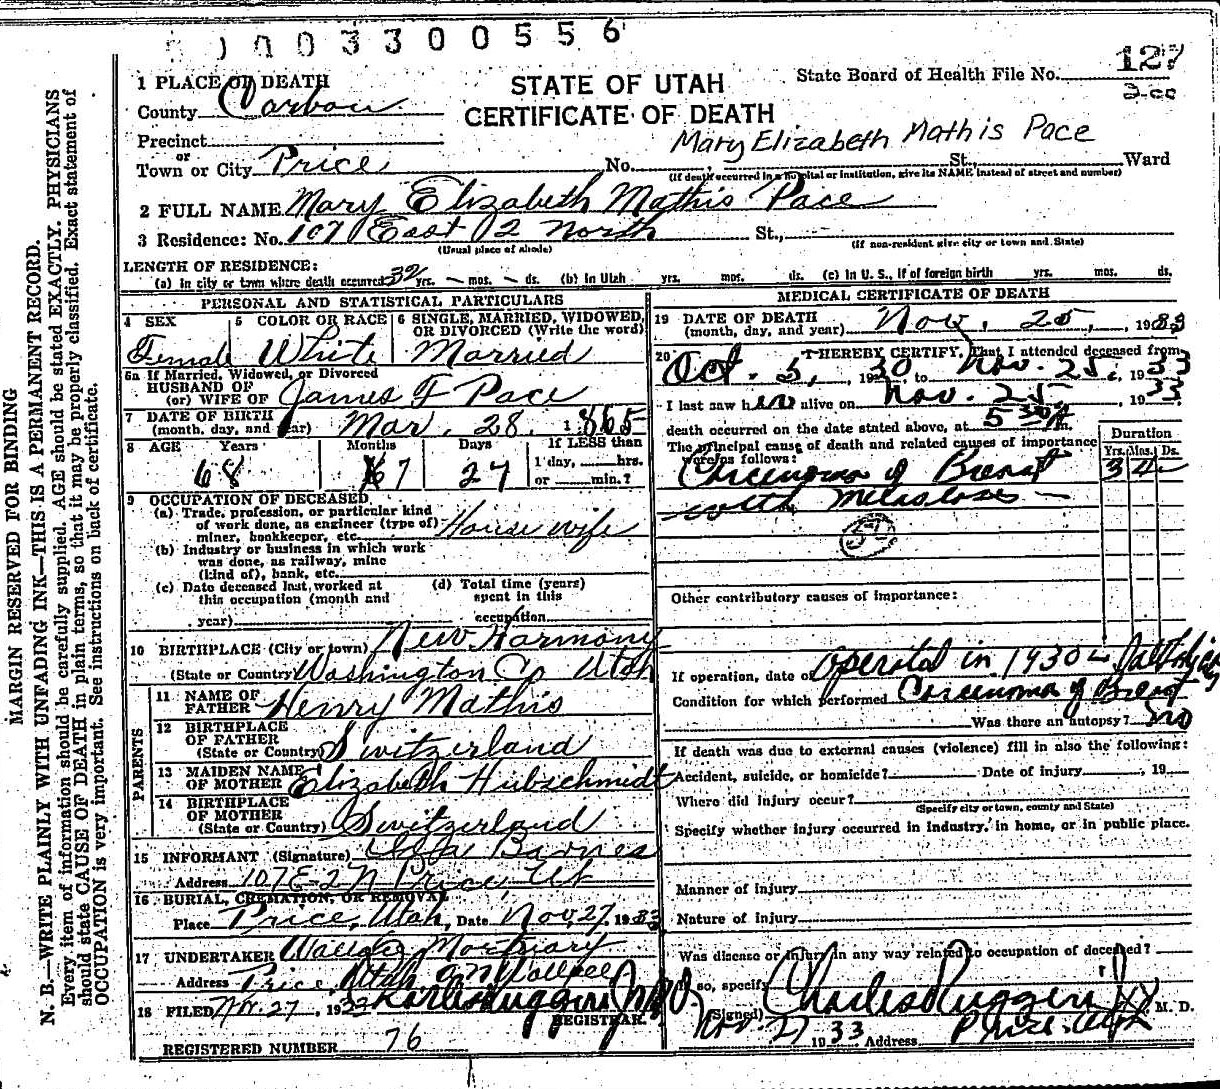 0003300556
127
STATE OF UTAH
CERTIFICATE OF DEATH
State Board of Health File No.
1 PLACE OF DEATH
County Carbon
Precinct
or
Town or City Price No. , St., Ward
Mary Elizabeth Mathis Pace
(If death occurred in a hospital or institution, give its NAME instead of street and number)
2 FULL NAME Mary Elizabeth Mathis Pace
3 Residence: No. 107 East 2 North St.,
(Usual place of abode) (If non-resident give city or town and State)
LENGTH OF RESIDENCE:
(a) in city or town where death occurred 32 yrs. — mos. — ds. (b) in Utah yrs. mos. ds. (c) in U. S., if of foreign birth yrs. mos. ds.
PERSONAL AND STATISTICAL PARTICULARS
4 SEX
Female
5 COLOR OR RACE
White
6 SINGLE, MARRIED, WIDOWED, OR DIVORCED (Write the word)
Married
6a If Married, Widowed, or Divorced
HUSBAND OF
(or) WIFE OF James F Pace
7 DATE OF BIRTH
(month, day, and year) Mar. 28. 1865
8 AGE Years Months Days If LESS than
68 7 27 1 day, hrs.
or min.?
9 OCCUPATION OF DECEASED
(a) Trade, profession, or particular kind
of work done, as engineer (type of)
miner, bookkeeper, etc. House wife
(b) Industry or business in which work
was done, as railway, mine
(kind of), bank, etc.
(c) Date deceased last worked at
this occupation (month and
year)
(d) Total time (years)
spent in this
occupation
10 BIRTHPLACE (City or town) New Harmony
(State or Country) Washington Co Utah
PARENTS
11 NAME OF
FATHER Henry Mathis
12 BIRTHPLACE
OF FATHER
(State or Country) Switzerland
13 MAIDEN NAME
OF MOTHER Elizabeth Hubschmidt
14 BIRTHPLACE
OF MOTHER
(State or Country) Switzerland
15 INFORMANT (Signature) Barnes
Address 107 E-2 N Price Ut
16 BURIAL, CREMATION, OR REMOVAL
Place Price, Utah, Date Nov. 27, 1933
17 UNDERTAKER Wallace Mortuary
Address Price, Utah.
18 FILED Nov. 27, 19
REGISTRAR.
REGISTERED NUMBER 76
MEDICAL CERTIFICATE OF DEATH
19 DATE OF DEATH
(month, day, and year) Nov. 25, 1933
20 I HEREBY CERTIFY, That I attended deceased from
Oct. 5, 1930 to Nov. 25, 1933
I last saw her alive on Nov. 25, 1933
death occurred on the date stated above, at 5 30 A m.
The principal cause of death and related causes of importance
were as follows:
Duration
Yrs. Mos. Ds.
Carcinoma of Breast 3 4 –
with Metastases —
50
Other contributory causes of importance:
If operation, date of operated in 1930
Condition for which performed Carcinoma of Breast
Was there an autopsy? no
If death was due to external causes (violence) fill in also the following:
Accident, suicide, or homicide? Date of injury , 19
Where did injury occur?
(Specify city or town, county and State)
Specify whether injury occurred in industry, in home, or in public place.
Manner of injury
Nature of injury
Was disease or injury in any way related to occupation of deceased?
If so, specify
(Signed) Charles Ruggeri Jr M. D.
Nov 27 1933 Address Price. Utah
MARGIN RESERVED FOR BINDING
N. B.—WRITE PLAINLY WITH UNFADING INK—THIS IS A PERMANENT RECORD.
Every item of information should be carefully supplied. AGE should be stated EXACTLY. PHYSICIANS
should state CAUSE OF DEATH in plain terms, so that it may be properly classified. Exact statement of
OCCUPATION is very important. See instructions on back of certificate.